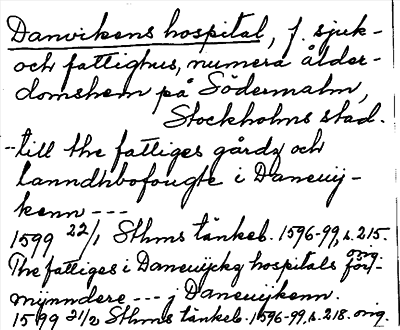 Danvikens hospital, f. sjuk-
och fattighus, numera ålder-
domshem på Södermalm,
Stockholms stad.
--till the fattiges gårdz och
lanndhbofougte i Daneuij-
kenn ---
1599 22/1 Sthms tänkeb. 1596-99, s. 215.
orig.
The fattiges i Daneuijckz hospitals för-
mÿnndere --- j Daneuijkenn.
1599 31/2 Sthms tänkeb. 1596-99, s. 218. orig.